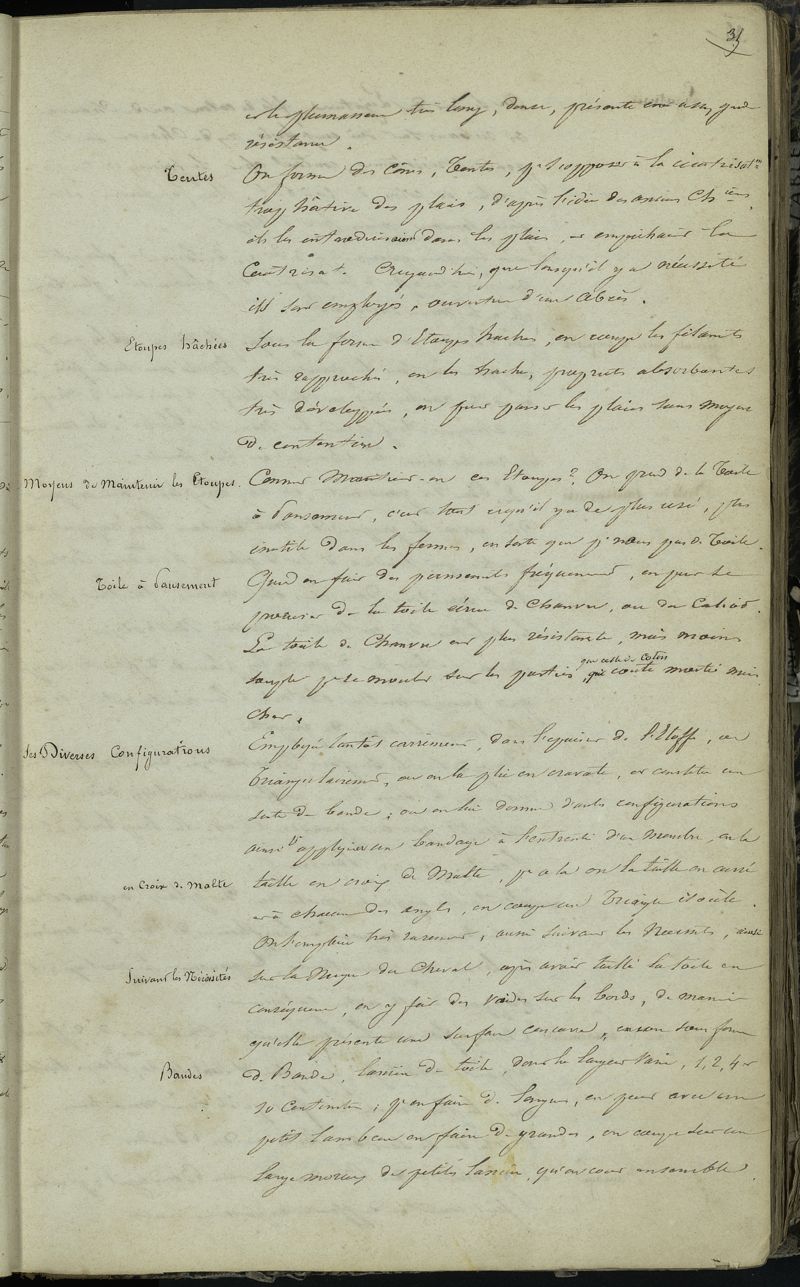 35
et le plumasseau très long, dense, présente une assez grde
résistance.
Tentes
On forme des cônes, Tentes, pr s'opposer à la cicatrisatn
trop hâtive des plaies, d'après l'idée des anciens Chiens
ils les introduisaient dans les plaies, et empêchaient la
Cicatrisat. Aujourd'hui, que lorsqu'il y a nécessité
ils sont employés, ouverture d'un Abcès.
Etoupes hâchées
Sous la forme d'Etoupes hachées, on coupe les filaments
très rapprochés, on les hache, propriétés absorbantes
très développées, on peut panser les plaies sans moyen
de contention.
Moyens de Maintenir les Etoupes.
Comment Maintient-on ces Etoupes? On prend de la Toile
à Pansement, c'est tout ce qu'il y a de plus usé, plus
inutile dans les fermes, en sorte que pr nous pas de Toile.
Toile à Pansement
Quand on fait des pansements fréquemment, on peut se
procurer de la toile écrue de Chanvre, ou du Calicot.
La toile de Chanvre est plus résistante, mais moins
souple pr se mouler sur les parties que celle de Coton qui coûte moitié moins
cher.
Ses Diverses Configurations
Employée tantôt carrément, dans l'épaisseur de l'Etoffe, ou
Triangulairement, ou on la plie en cravate, et constitue une
sorte de bande; ou on lui donne d'autres configurations
ainsi pr appliquer un bandage à l'extrémité d'un Membre, on la
en Croix de Malte
taille en croix de Malte, pr cela on la taille en carré
et à chacun des angles, on coupe un Triangle isocèle.
On l'emploie très rarement; aussi suivant les Nécessités, ainsi
Suivant les Nécessités
sur la Nuque du Cheval, après avoir taillé la toile en
conséquence, on y fait des vides sur les bords, de manière
qu'elle présente une surface concave, encore sous forme
Bandes
de Bande, lanière de toile, dont la largeur varie, 1, 2, 4 et
10 Centimètres; pr en faire de longues, on peut avec un
petit lambeau en faire de grandes, on coupe sur un
large morceau des petites lanières, qu'on coud ensemble